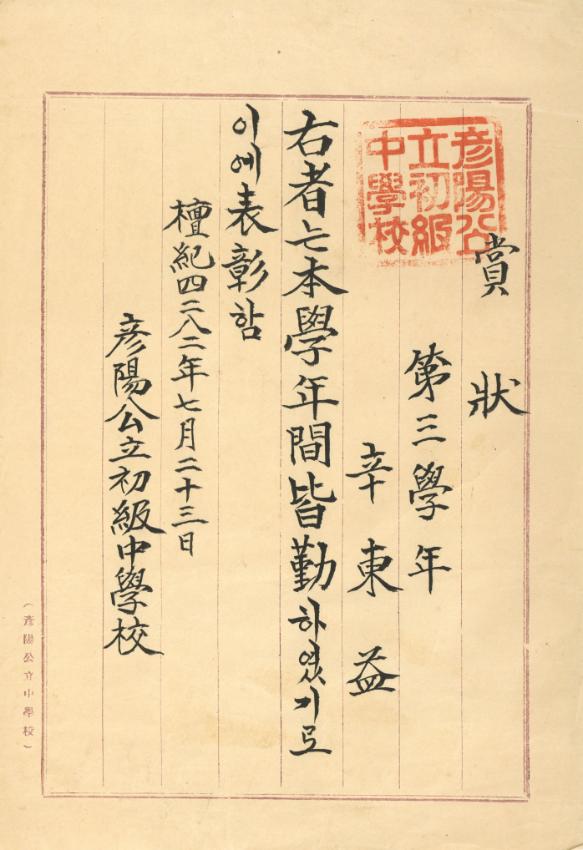 賞狀
彦陽公
立初級
中學校
第三學年
辛東益
右者는本學年間皆勤하였기로
이에表彰함
檀紀四二八二年七月二十三日
彦陽公立初級中學校
(彦陽公立中學校)